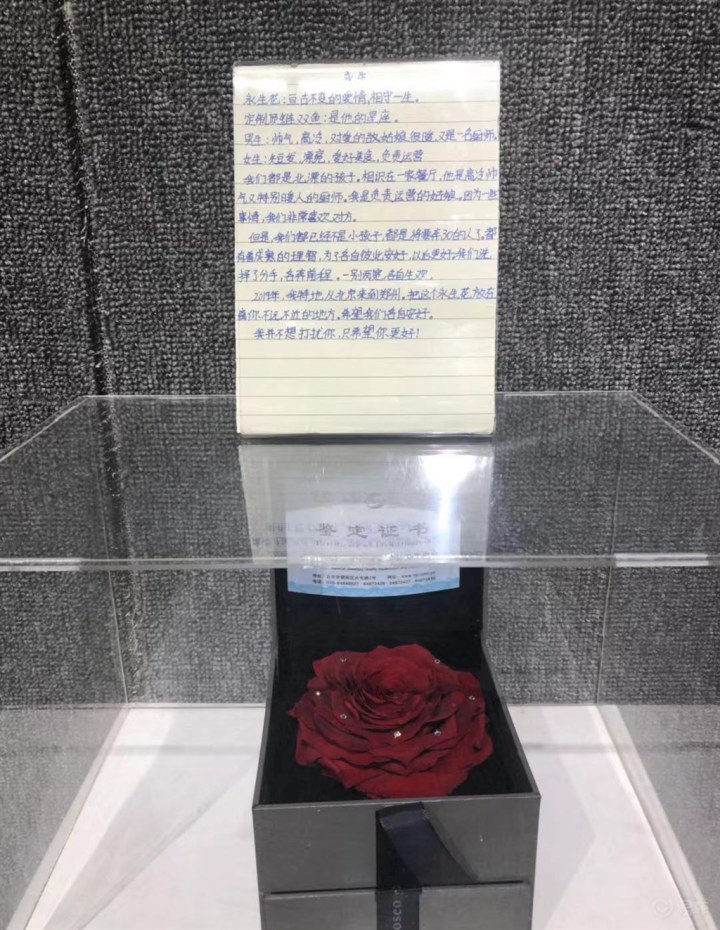 永生花：亘古不变的爱情，相守一生。
定制项链双鱼：是他的星座。
男生：帅气，高冷，对鱼的故姑娘很暖，又是一名厨师。
女生：短发，漂亮，爱好美度，负责运营
我们都是北漂的孩子。相识在一家餐厅，他是高冷帅
气又特别暖人的厨师。我是负责运营的姑娘。因为一些
事情，我们非常喜欢对方。
但是，我们都已经不是小孩子，都是将要奔30的人了。都
有最成熟的理智，为了各自彼此安好，以后更好，我们选
择了分手，各奔前程。一别两宽，各自生欢。
2019年，我特地从北京来到郑州。把这个永生花放在
离你不远不近的地方。希望我们各自安好。
我并不想打扰你，只希望你更好！
鉴定证书